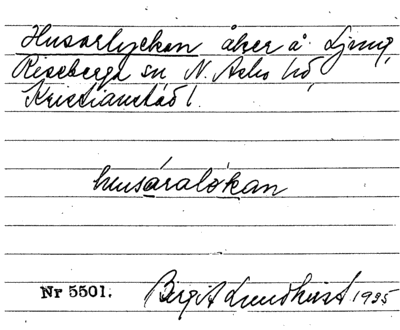 Husarlyckan åker å Ljung,
Riseberga sn N. Asbo hd,
Kristianstad l.
husáralókan
Nr 5501.
Birgit Lundkvist 1935